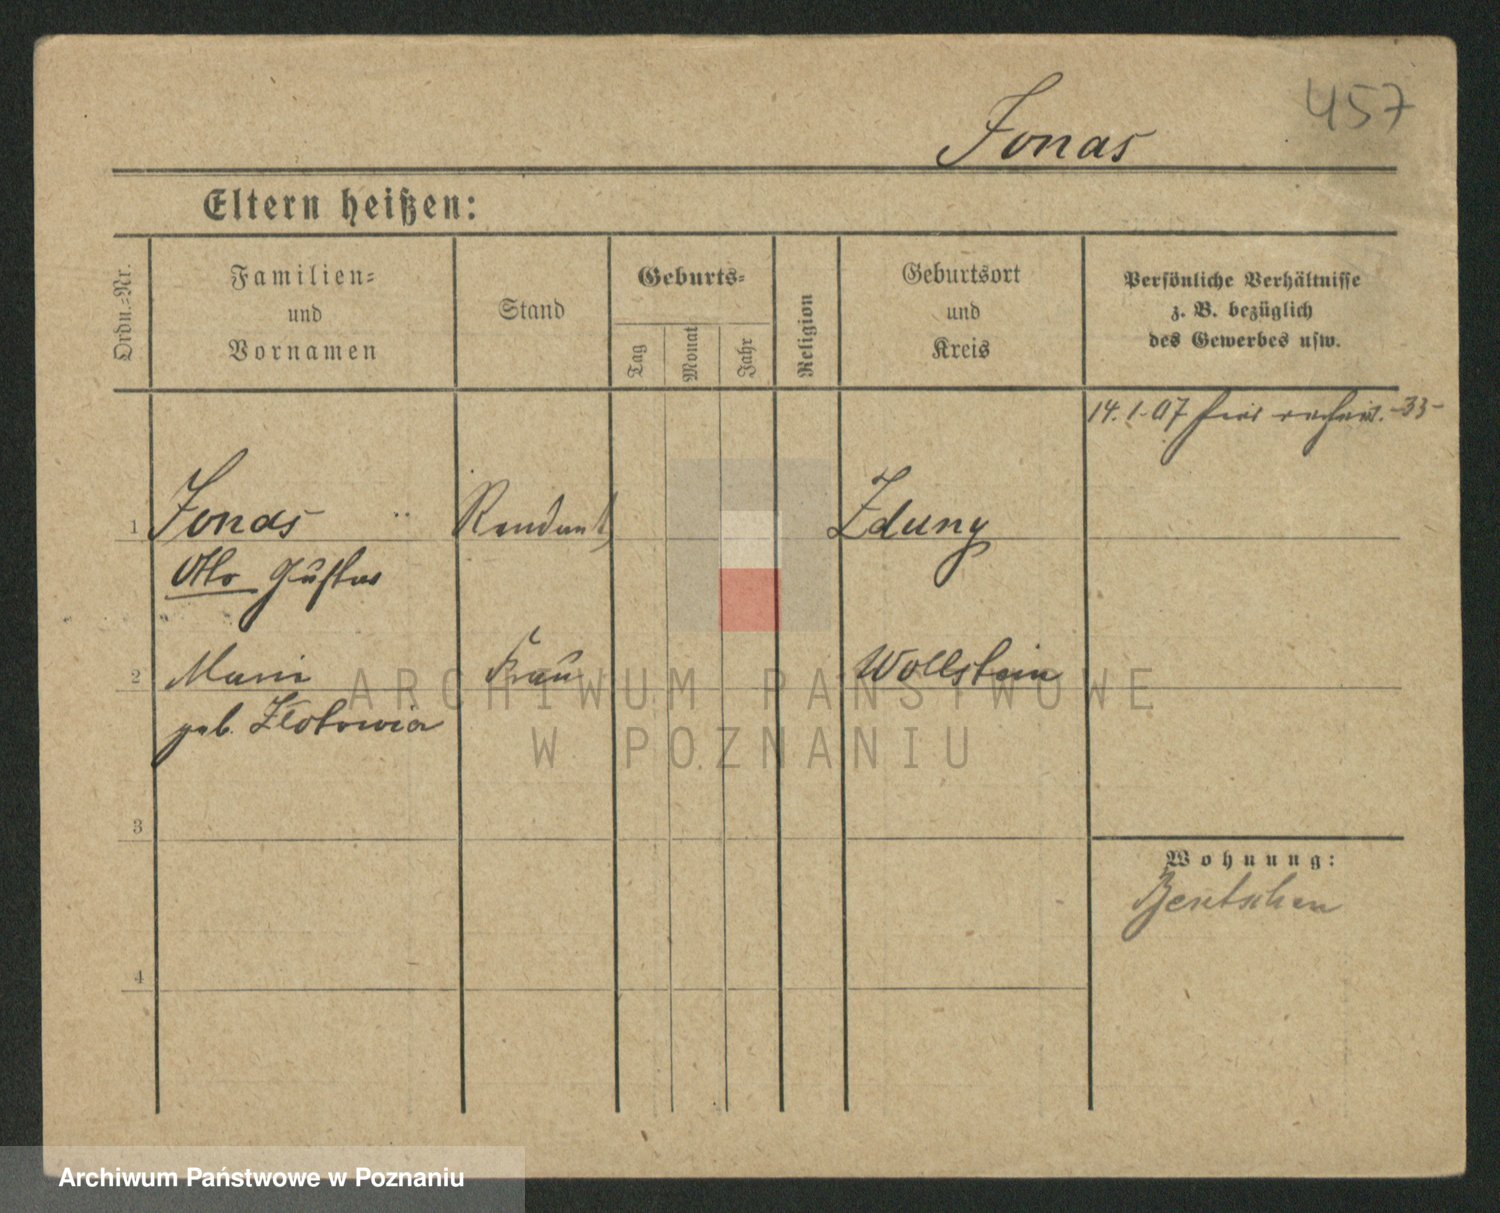 457
Jonas
Eltern heißen:
Ordn.-Nr.
Familien-
und
Vornamen
Stand
Geburts-
Tag
Monat
Jahr
Religion
Geburtsort
und
Kreis
Persönliche Verhältnisse
z. B. bezüglich
des Gewerbes usw.
14. 1. 07 -33-
1 Jonas Rendant Zduny
Otto Gustav
2 Marie Frau Wollstein
geb. Zlotowia
ARCHIWUM PAŃSTWOWE
W POZNANIU
3
Wohnung:
Bentschen
4
Archiwum Państwowe w Poznaniu